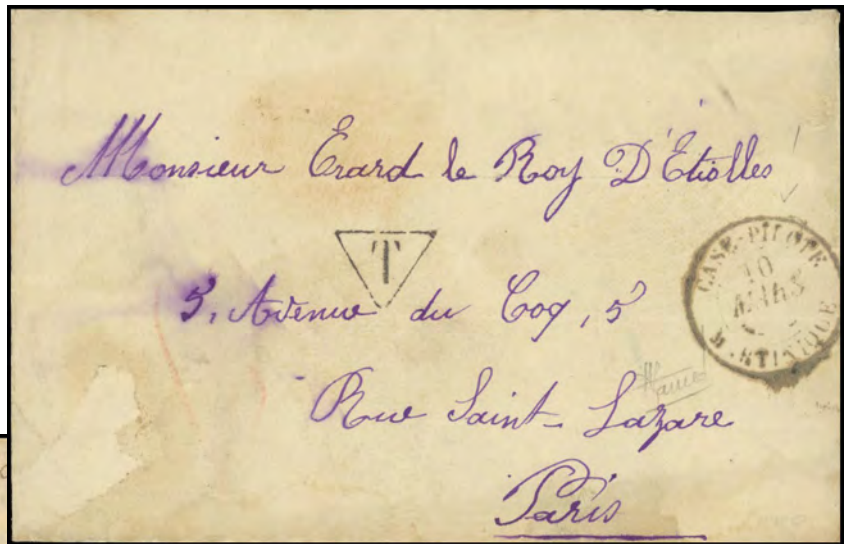 Monsieur Érard le Roy D'Étiolles
T
5, Avenue du Coq, 5
CASE-PILOTE
10
MARS
MARTINIQUE
Rue Saint-Lazare
Paris